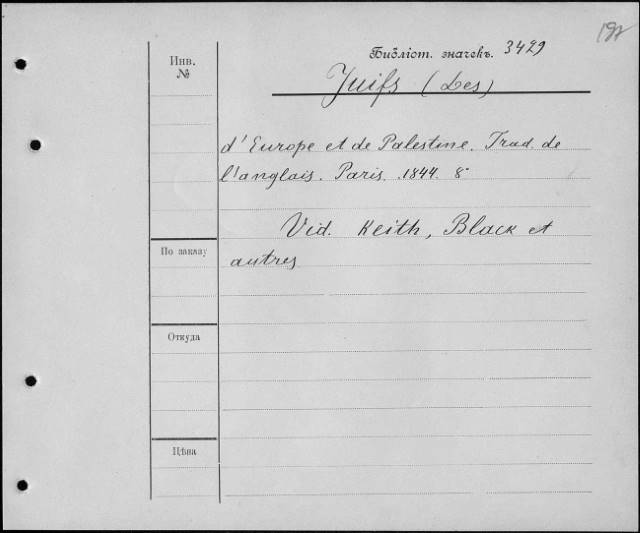 197
Библіот. значекъ. 3429
Инв.
№
Juifs (Les)
d'Europe et de Palestine. Trad. de
l'anglais. Paris. 1844. 8°
Vid. Keith, Black et
autres
По заказу
Откуда
Цѣна